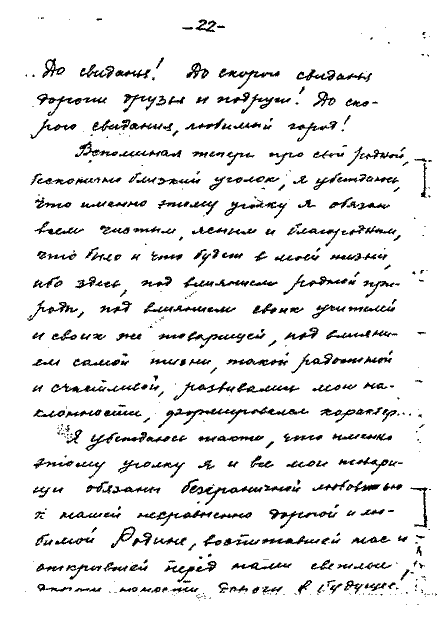 -22-
.. До свиданья! До скорого свиданья
дорогие друзья и подруги! До ско-
рого свидания, любимый город!
Вспоминая теперь про свой родной,
бесконечно близкий уголок, я убеждаюсь,
что именно этому уголку я обязан
всем чистым, ясным и благородным,
что было и что будет в моей жизни,
ибо здесь, под влиянием родной при-
роды, под влиянием своих учителей
и своих же товарищей, под влияни-
ем самой жизни, такой радостной
и счастливой, развивались мои на-
клонности, формировался характер...
Я убеждаюсь также, что именно
этому уголку я и все мои товари-
щи обязаны безграничной любовью
к нашей несравненно дорогой и лю-
бимой Родине, воспитавшей нас и
открывшей перед нами светлые
юности дороги в будущее!